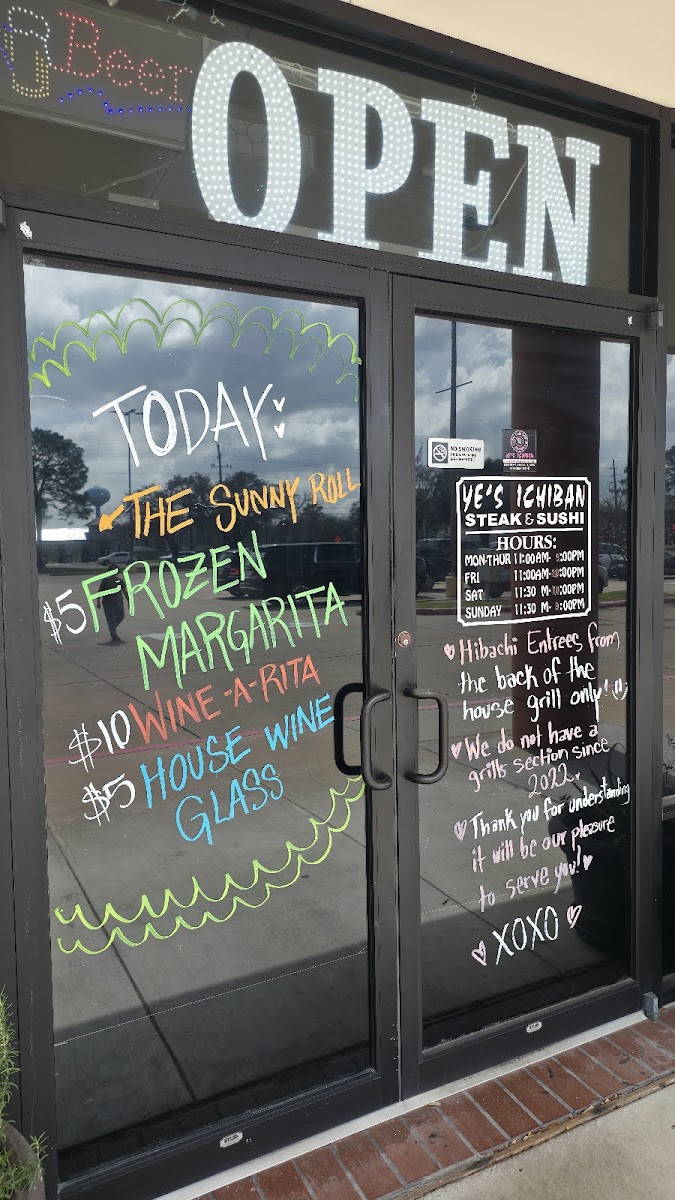 Beer
OPEN
TODAY
THE SUNNY ROLL
$5 FROZEN
MARGARITA
$10 WINE-A-RITA
$5 HOUSE WINE
GLASS
NO SMOKING
YE'S ICHIBAN
STEAK & SUSHI
HOURS:
MON-THUR 11:00AM- :00PM
FRI 11:00AM- :00PM
SAT 11:30 M- :00PM
SUNDAY 11:30 M- :00PM
Hibachi Entrees from
the back of the
house grill only!
We do not have a
grills section since
2022.
Thank you for understanding
it will be our pleasure
to serve you!
XOXO